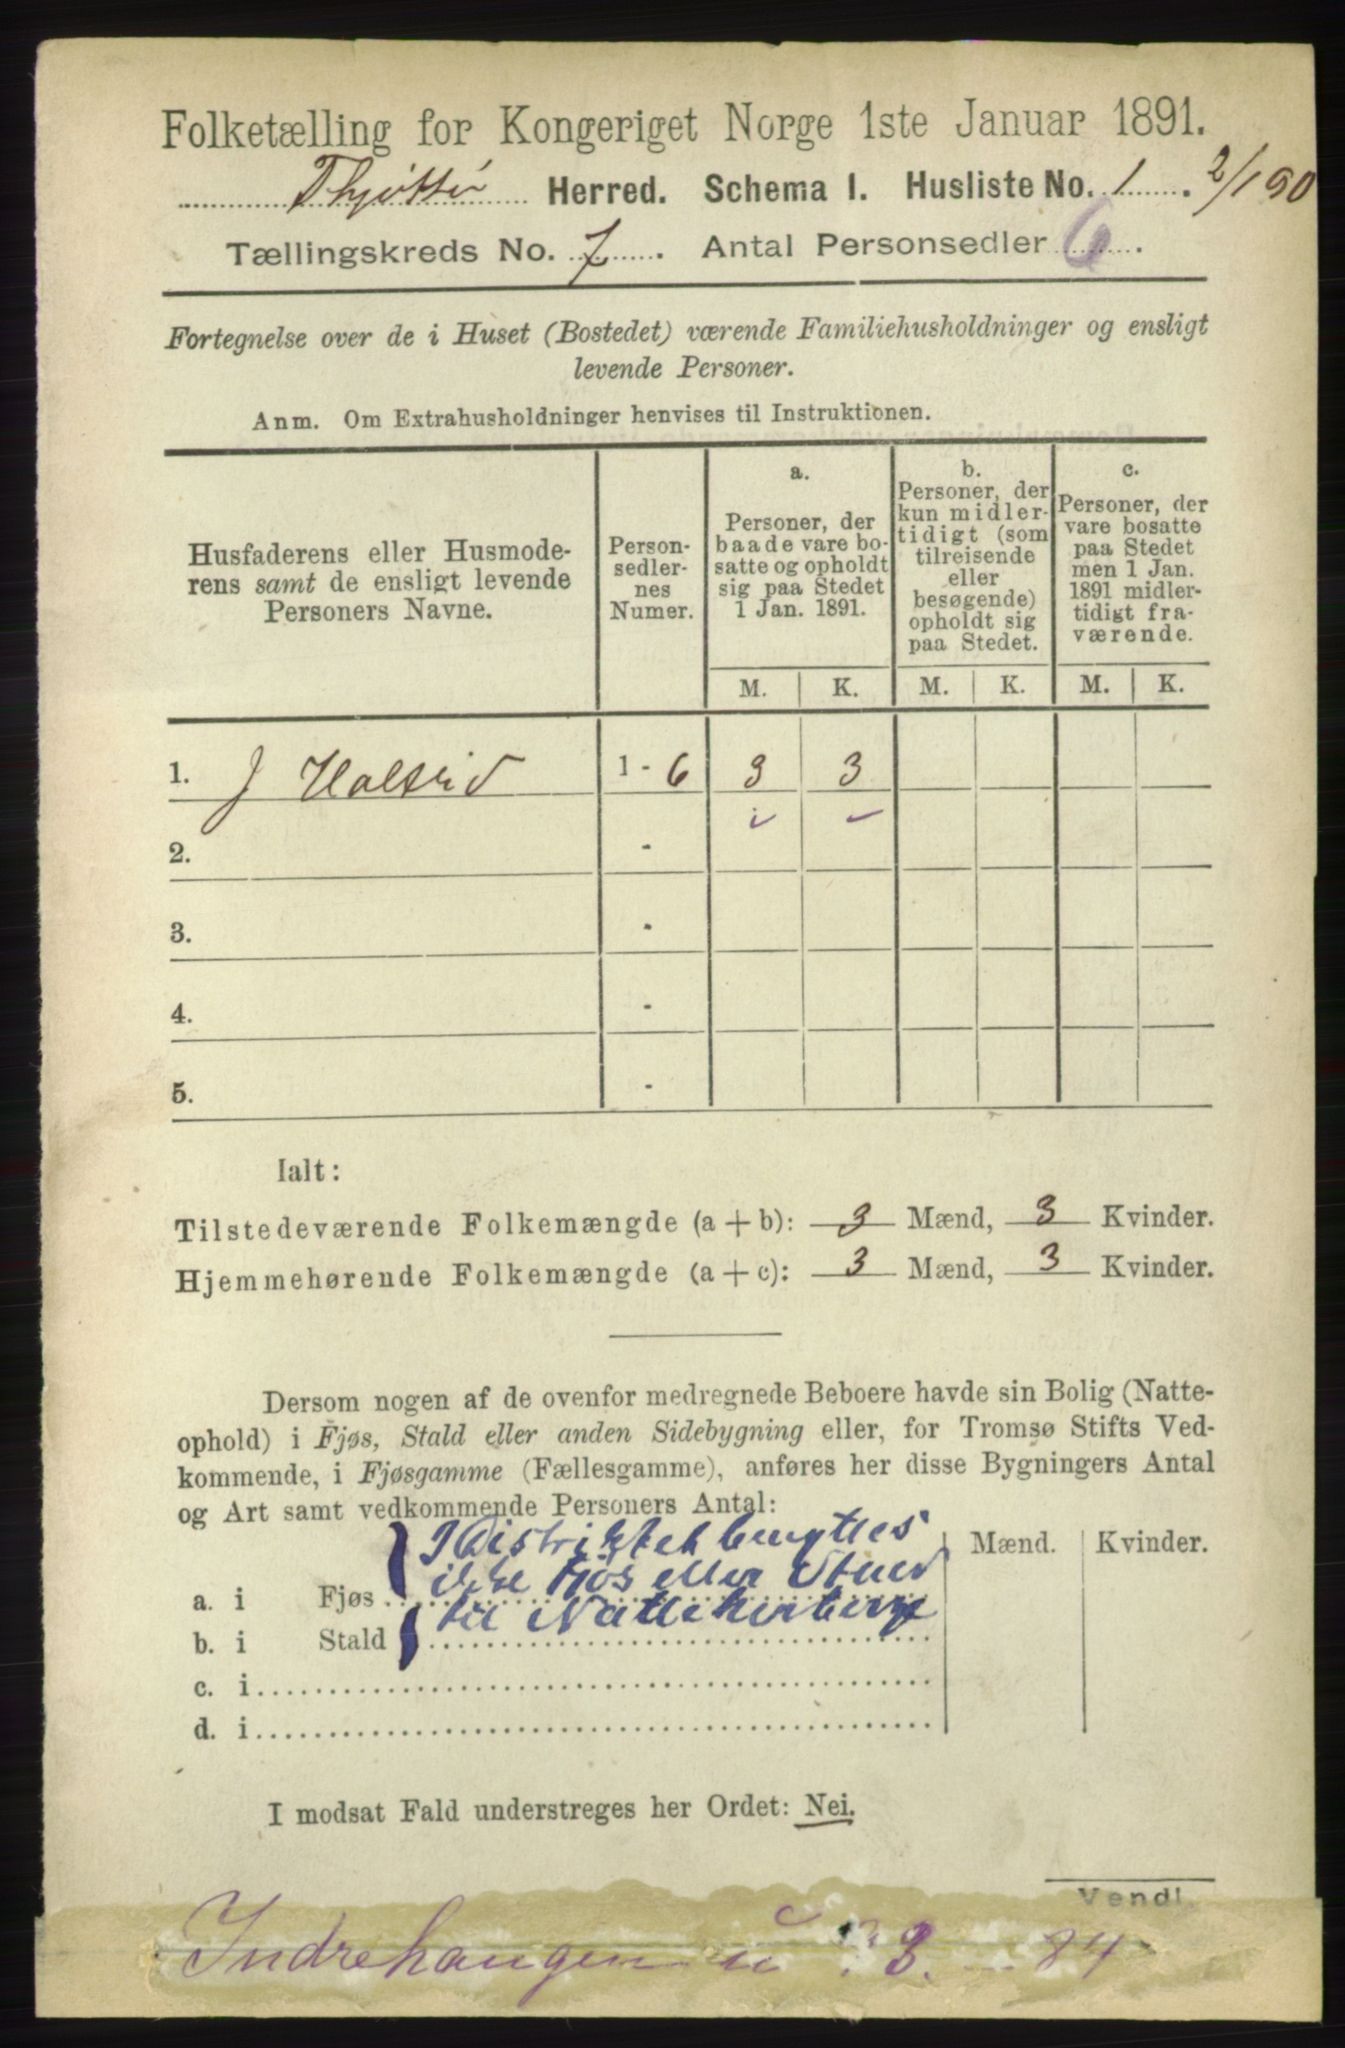 Folketælling for Kongeriget Norge 1ste Januar 1891.
Thjøttø Herred. Schema I. Husliste No. 1.
Tællingskreds No. 7. Antal Personsedler 6.
Fortegnelse over de i Huset (Bostedet) værende Familiehusholdninger og ensligt
levende Personer.
Anm. Om Extrahusholdninger henvises til Instruktionen.
Husfaderens eller Husmode-
rens samt de ensligt levende
Personers Navne.
Person-
sedler-
nes
Numer.
a.
Personer, der
baade vare bo-
satte og opholdt
sig paa Stedet
1 Jan. 1891.
b.
Personer, der
kun midler-
tidigt (som
tilreisende
eller
besøgende)
opholdt sig
paa Stedet.
c.
Personer, der
vare bosatte
paa Stedet
men 1 Jan.
1891 midler-
tidigt fra-
værende.
M. K. M. K. M. K.
1. J 1 - 6 3 3
2. -
3. -
4. -
5. -
Ialt:
Tilstedeværende Folkemængde (a + b): 3 Mænd, 3 Kvinder.
Hjemmehørende Folkemængde (a + c): 3 Mænd, 3 Kvinder.
Dersom nogen af de ovenfor medregnede Beboere havde sin Bolig (Natte-
ophold) i Fjøs, Stald eller anden Sidebygning eller, for Tromsø Stifts Ved-
kommende, i Fjøsgamme (Fællesgamme), anføres her disse Bygningers Antal
og Art samt vedkommende Personers Antal:
I Distriktet benyttes
ikke Fjøs eller
til
Mænd. Kvinder.
a. i Fjøs
b. i Stald
c. i
d. i
I modsat Fald understreges her Ordet: Nei.
Vend!
Indrehaugen u 3. 84